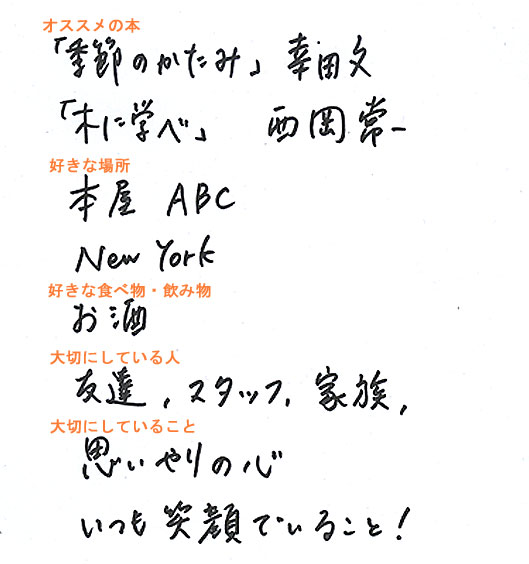 オススメの本
「季節のかたみ」 幸田文
「木に学べ」 西岡常一
好きな場所
本屋 ABC
New York
好きな食べ物・飲み物
お酒
大切にしている人
友達，スタッフ，家族，
大切にしていること
思いやりの心
いつも笑顔でいること！